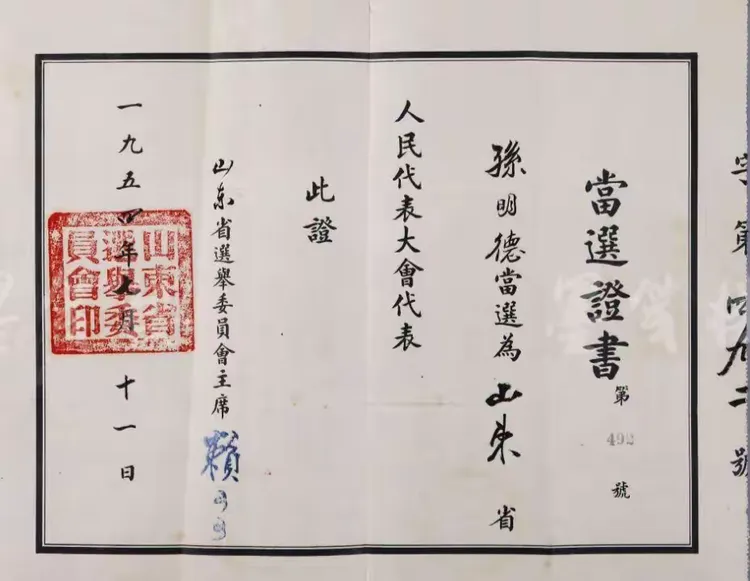 字第四九二號
當選證書
第492號
孫明德當選為山东省
人民代表大會代表
此證
山东省選舉委員會主席 賴可可
一九五四年七月十一日
山東省選舉委員會印